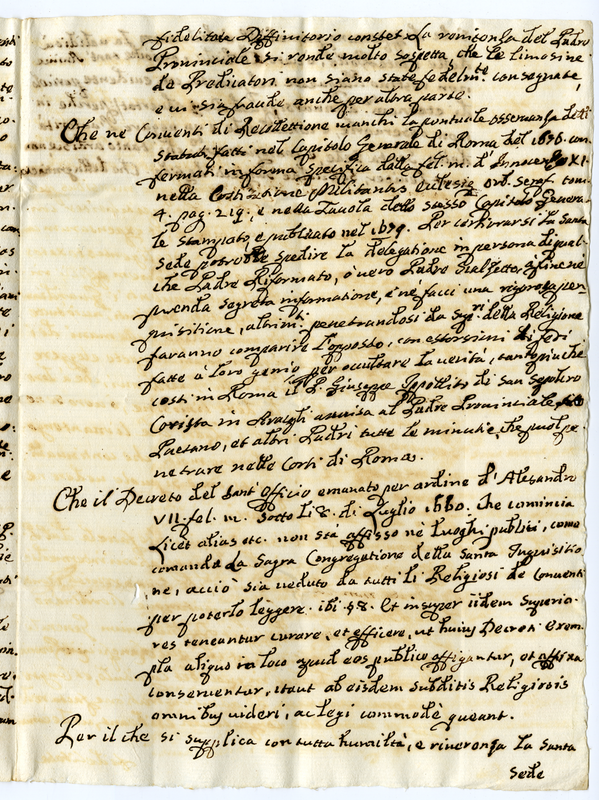 fidelitate Diffinitorio constet. La ronconla del Padre
Provinciale si rende molto sospetta, che le limosine
de Predicatori non siano state fedelmte consegnate,
e ui sia fraude anche per altra parte.
Che ne Conuenti di Recollettione manchi la pontuale osseruanza delli
Statuti fatti nel Capitolo Generale di Roma del 1676. con
fermati in forma specifica dalla fel. m. d'Innocenzo XI
nella Constitutione Militantis Ecclesiæ ord. Seraf. tom.
4. pag. 219. e nella Tauola dello stesso Capitolo Genera
le stampato, e publicato nel 1679. Per certiorarsi la Santa
Sede potrebbe spedire la delegatione in persona di qual
che Padre Riformato, ò uero Padre affinche ne
prenda segreta informatione, e nè facci una rigorosa per
quisitione, altrimti penetrandosi da Sqri della Religione
faranno comparire l'opposto, con di fedi
fatte à loro genio per occultare la uerità, tanto più che
costi in Roma il P. Giuseppe Ippolito di San Seuero
Corista in Araceli auuisa al Padre Prouinciale
Paesano, et altri Padri tutte le minutie, che puol pe
netrare nelle Corti di Roma.
Che il Decreto del Sant'Officio emanato per ordine d'Alesandro
VII. fel. m. Sotto li 8. di Luglio 1660. che comincia
Licet alias etc. non stà affisso nè luoghi publici, come
comanda la Sagra Congregatione della Santa Inquisitio
ne, acciò sia ueduto da tutti li Religiosi de Conuenti
per poterlo leggere. ibi §8. Et insuper iidem Superio
res teneantur curare, et efficere, ut huius Decreti exem
pla aliquo in loco apud eos publico affigantur, et affixa
conseruentur, itaut ab eisdem subditis Religiosis
omnibus uideri, ac legi commodè queant.
Per il che si supplica con tutta humiltà, e riuerenza la Santa
Sede